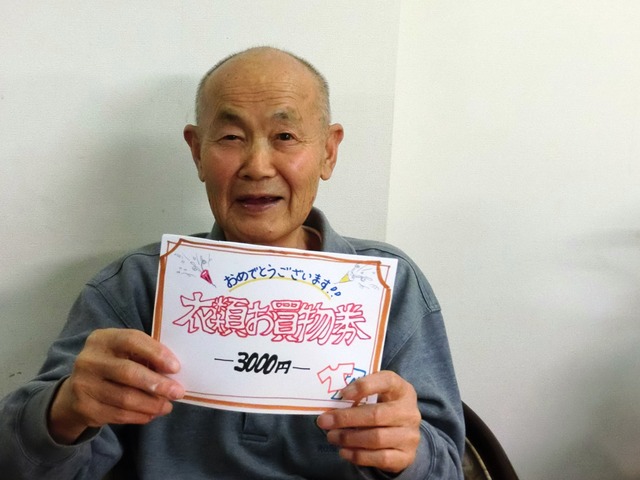 おめでとうございます!!
衣類お買物券
ー3000円ー